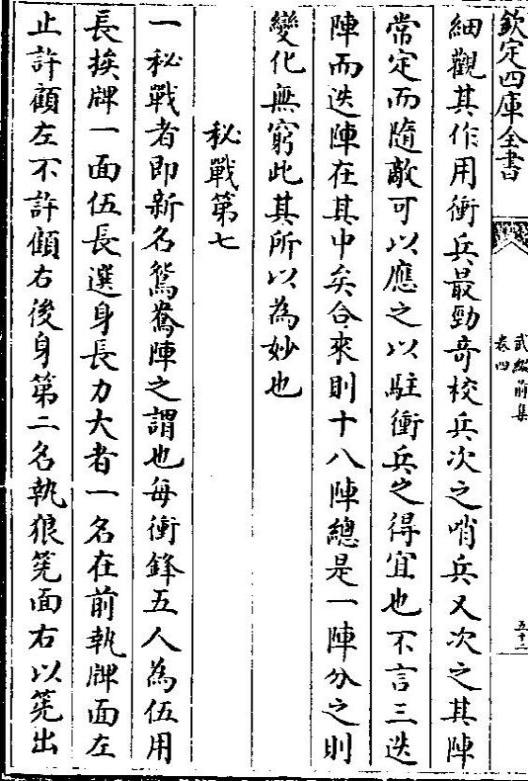 欽定四庫全書
武編前集
卷四
五十二
細觀其作用衝兵最勁竒校兵次之哨兵又次之其陣
常定而隨敵可以應之以駐衝兵之得宜也不言三迭
陣而迭陣在其中矣合來則十八陣總是一陣分之則
變化無窮此其所以為妙也
秘戰第七
一秘戰者即新名鴛鴦陣之謂也每衝鋒五人為伍用
長挨牌一面伍長選身長力大者一名在前執牌面左
止許顧左不許傾右後身第二名執狼筅面右以筅出